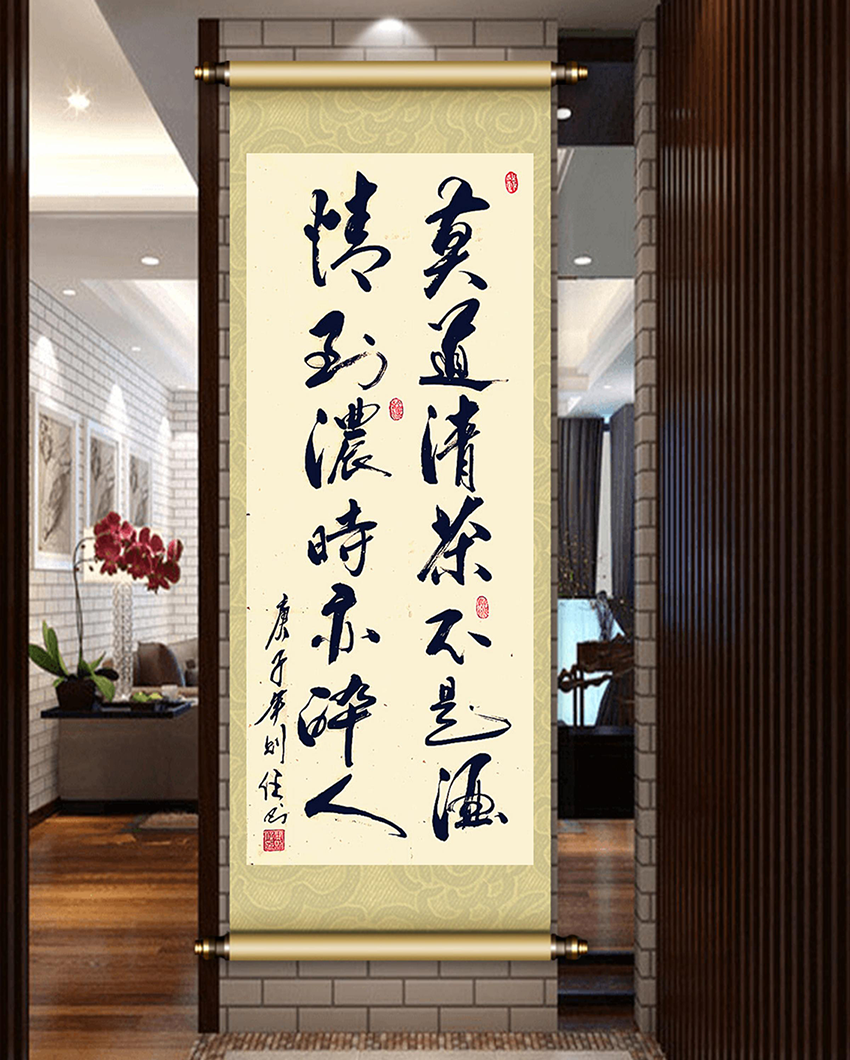 莫道清茶不是酒
情到濃時亦醉人
庚子年